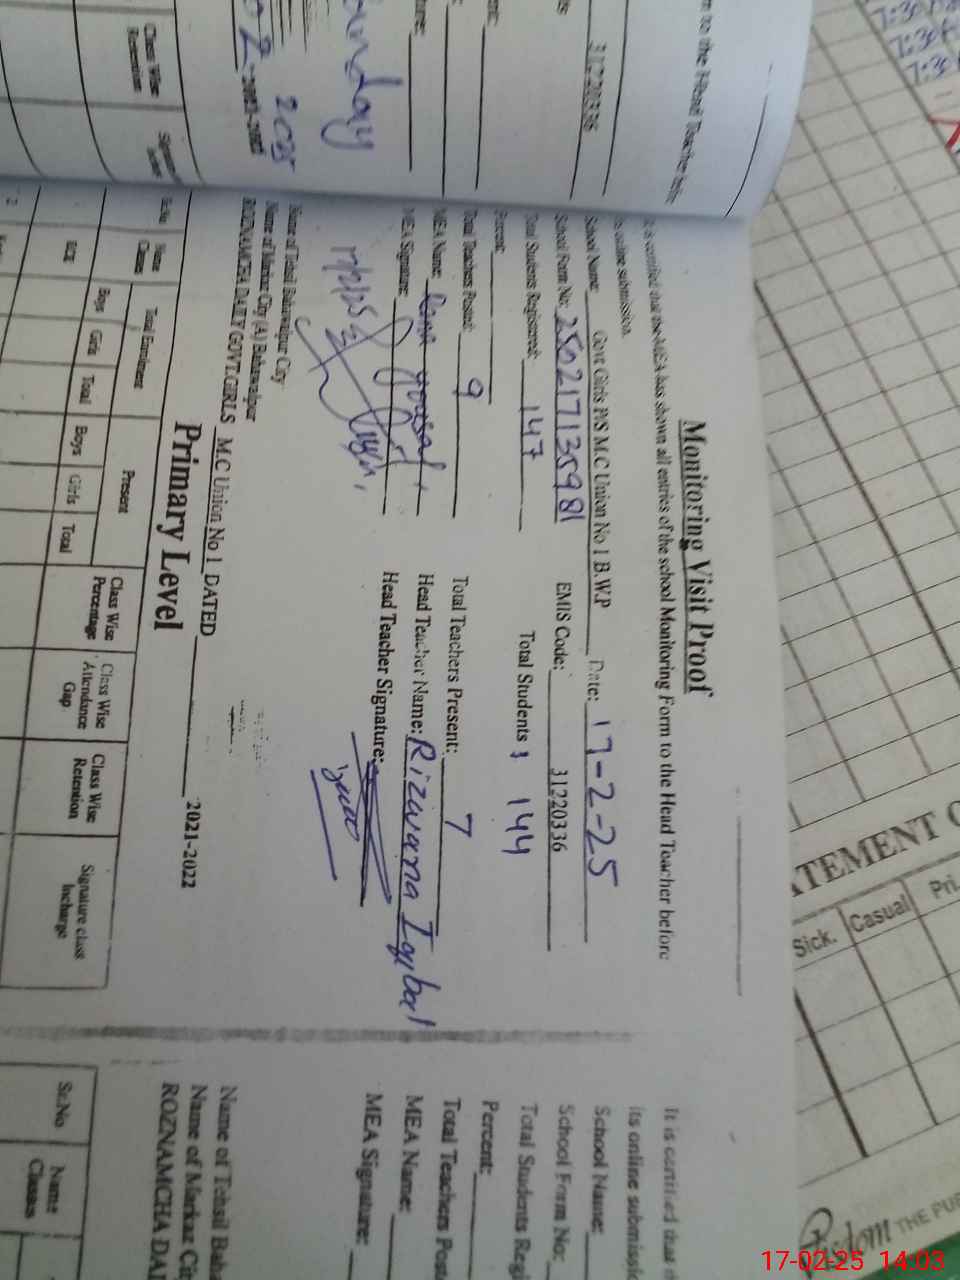 Monitoring Visit Proof
It is certified that the MEA has shown all entries of the school Monitoring Form to the Head Teacher before
its online submission.
School Name: Govt Girls P/S M.C Union No 1 B.W.P Date: 17-2-25
School Form No: 250217135981 EMIS Code: 31220336
Total Students Registered: 147 Total Students 144
Percent:
Total Teachers Posted: 9 Total Teachers Present: 7
MEA Name: Head Teacher Name: Rizwana Iqbal
MEA Signature: Head Teacher Signature:
17/2/25
Name of Tehsil Bahawalpur City
Name of Markaz City (A) Bahawalpur
ROZNAMCHA DAILY GOVT.GIRLS M.C Union No 1 DATED 2021-2022
Primary Level
Name Classes Total Enrolment Present Class Wise Percentage Class Wise Attendance Gap Class Wise Retention Signature class Incharge
Boys Girls Total Boys Girls Total
ECE
2
m to the Head Teacher before
31220336
2025
2021-2022
Class Wise Retention
It is certified that
its online submission
School Name:
School Form No:
Total Students Regi
Percent:
Total Teachers Poste
MEA Name:
MEA Signature:
Name of Tehsil Baha
Name of Markaz Cit
ROZNAMCHA DAI
Sr.No Name Classes
7:30
7:30
7:30
ATEMENT O
Sick. Casual Pri.
THE PU
17-02-25 14:03